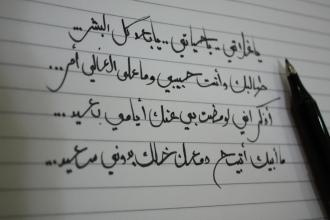 يا غرامي .. يا حياتي .. يا بعد كل البشر ...
طالبك وأنت حبيبي وما على الغالي أمر ...
أذكرني لو مضت بي عنك أيامي بعيد ...
ما أبيك أتيح دمعك خلك بدوني سعيد ...